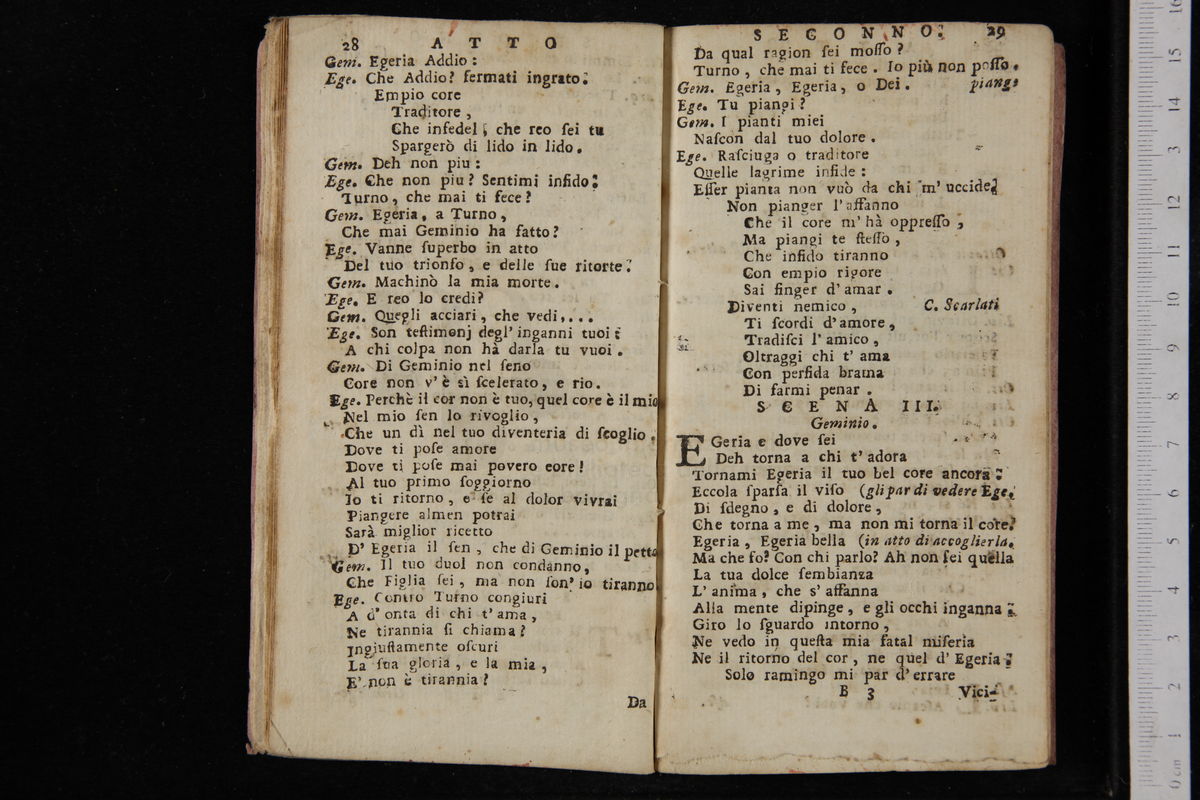 28 A T T O
Gem. Egeria Addio:
Ege. Che Addio? fermati ingrato:
Empio core
Traditore,
Che infedel, che reo ſei tu
Spargerò di lido in lido.
Gem. Deh non piu:
Ege. Che non piu? Sentimi infido:
Turno, che mai ti fece?
Gem. Egeria, a Turno,
Che mai Geminio ha fatto?
Ege. Vanne ſuperbo in atto
Del tuo trionfo, e delle ſue ritorte:
Gem. Machinò la mia morte.
Ege. E reo lo credi?
Gem. Quegli acciari, che vedi,...
Ege. Son teſtimonj degl' inganni tuoi:
A chi colpa non hà darla tu vuoi.
Gem. Di Geminio nel ſeno
Core non v' è sì ſcelerato, e rio.
Ege. Perchè il cor non è tuo, quel core è il mio
Nel mio ſen lo rivoglio,
Che un dì nel tuo diventeria di ſcoglio.
Dove ti poſe amore
Dove ti poſe mai povero eore!
Al tuo primo ſoggiorno
Io ti ritorno, e ſe al dolor vivrai
Piangere almen potrai
Sarà miglior ricetto
D' Egeria il ſen, che di Geminio il petto
Gem. Il tuo duol non condanno,
Che Figlia ſei, ma non ſon' io tiranno
Ege. Contro Turno congiuri
A d' onta di chi t' ama,
Ne tirannia ſi chiama?
Ingiuſtamente oſcuri
La ſua gloria, e la mia,
E' non è tirannia?
Da
S E C O N N O. 29
Da qual ragion ſei moſſo?
Turno, che mai ti fece. Io più non poſſo.
Gem. Egeria, Egeria, o Dei. piange
Ege. Tu piangi?
Gem. I pianti miei
Naſcon dal tuo dolore.
Ege. Raſciuga o traditore
Quelle lagrime infide:
Eſſer pianta non vuò da chi m' uccide:
Non pianger l' affanno
Che il core m' hà oppreſſo,
Ma piangi te ſteſſo,
Che infido tiranno
Con empio rigore
Sai finger d' amar.
Diventi nemico, C. Scarlati
Ti ſcordi d' amore,
Tradiſci l' amico,
Oltraggi chi t' ama
Con perfida brama
Di farmi penar.
S C E N A III.
Geminio.
EGeria e dove ſei
Deh torna a chi t' adora
Tornami Egeria il tuo bel core ancora:
Eccola ſparſa il viſo (gli par di vedere Ege.
Di ſdegno, e di dolore,
Che torna a me, ma non mi torna il core?
Egeria, Egeria bella (in atto di accoglierla.
Ma che fo? Con chi parlo? Ah non ſei quella
La tua dolce ſembianza
L' anima, che s' affanna
Alla mente dipinge, e gli occhi inganna:
Giro lo ſguardo intorno,
Ne vedo in queſta mia fatal miſeria
Ne il ritorno del cor, ne quel d' Egeria:
Solo ramingo mi par d' errare
B 3 Vici-